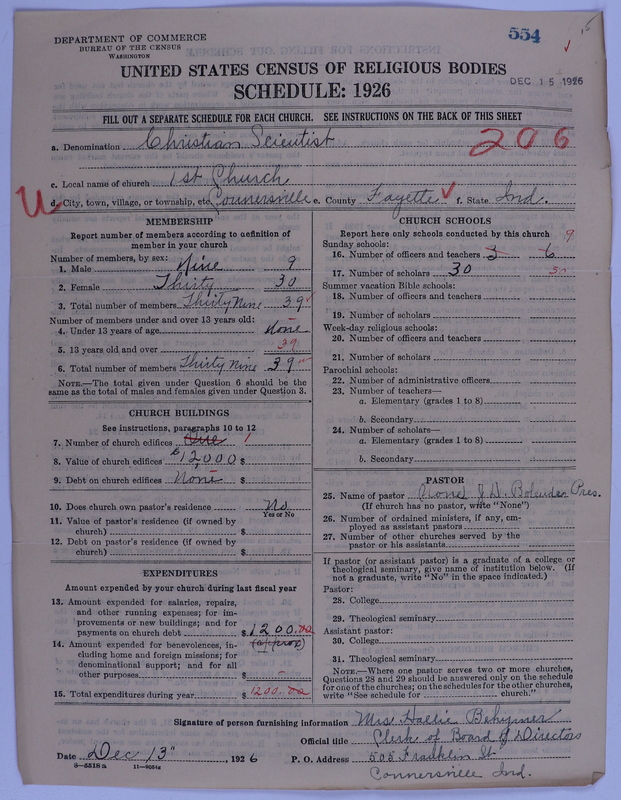 554
15
DEPARTMENT OF COMMERCE
BUREAU OF THE CENSUS
WASHINGTON
UNITED STATES CENSUS OF RELIGIOUS BODIES
DEC 15 1926
SCHEDULE: 1926
FILL OUT A SEPARATE SCHEDULE FOR EACH CHURCH. SEE INSTRUCTIONS ON THE BACK OF THIS SHEET
a. Denomination Christian Scientist
206
c. Local name of church 1st Church
U
d. City, town, village, or township, etc. Connersville e. County Fayette f. State Ind.
MEMBERSHIP
Report number of members according to definition of
member in your church
Number of members, by sex:
1. Male Nine 9
2. Female Thirty 30
3. Total number of members Thirty Nine 39
Number of members under and over 13 years old:
4. Under 13 years of age None
5. 13 years old and over 39
6. Total number of members Thirty Nine 39
NOTE.—The total given under Question 6 should be the
same as the total of males and females given under Question 3.
CHURCH BUILDINGS
See instructions, paragraphs 10 to 12
7. Number of church edifices One 1
8. Value of church edifices $12,000 $
9. Debt on church edifices None $
10. Does church own pastor's residence No
Yes or No
11. Value of pastor's residence (if owned by
church) $
12. Debt on pastor's residence (if owned by
church) $
EXPENDITURES
Amount expended by your church during last fiscal year
13. Amount expended for salaries, repairs,
and other running expenses; for im-
provements or new buildings; and for
payments on church debt $1200.00
(approx)
14. Amount expended for benevolences, in-
cluding home and foreign missions; for
denominational support; and for all
other purposes $ -
15. Total expenditures during year $1200.00
CHURCH SCHOOLS
Report here only schools conducted by this church
9
Sunday schools:
16. Number of officers and teachers 3 6
17. Number of scholars 30 30
Summer vacation Bible schools:
18. Number of officers and teachers
19. Number of scholars
Week-day religious schools:
20. Number of officers and teachers
21. Number of scholars
Parochial schools:
22. Number of administrative officers
23. Number of teachers—
a. Elementary (grades 1 to 8)
b. Secondary
24. Number of scholars—
a. Elementary (grades 1 to 8)
b. Secondary
PASTOR
25. Name of pastor (None) J. D. Bolender Pres.
(If church has no pastor, write "None")
26. Number of ordained ministers, if any, em-
ployed as assistant pastors
27. Number of other churches served by the
pastor or his assistants
If pastor (or assistant pastor) is a graduate of a college or
theological seminary, give name of institution below. (If
not a graduate, write "No" in the space indicated.)
Pastor:
28. College
29. Theological seminary
Assistant pastor:
30. College
31. Theological seminary
NOTE.—Where one pastor serves two or more churches,
Questions 28 and 29 should be answered only on the schedule
for one of the churches; on the schedules for the other churches,
write "See schedule for church."
Signature of person furnishing information Mrs Hallie Behymer
Official title Clerk of Board of Directors
Date Dec 13", 1926 P. O. Address 505 Franklin St
8—5518 a 11—9051a
Connersville Ind.